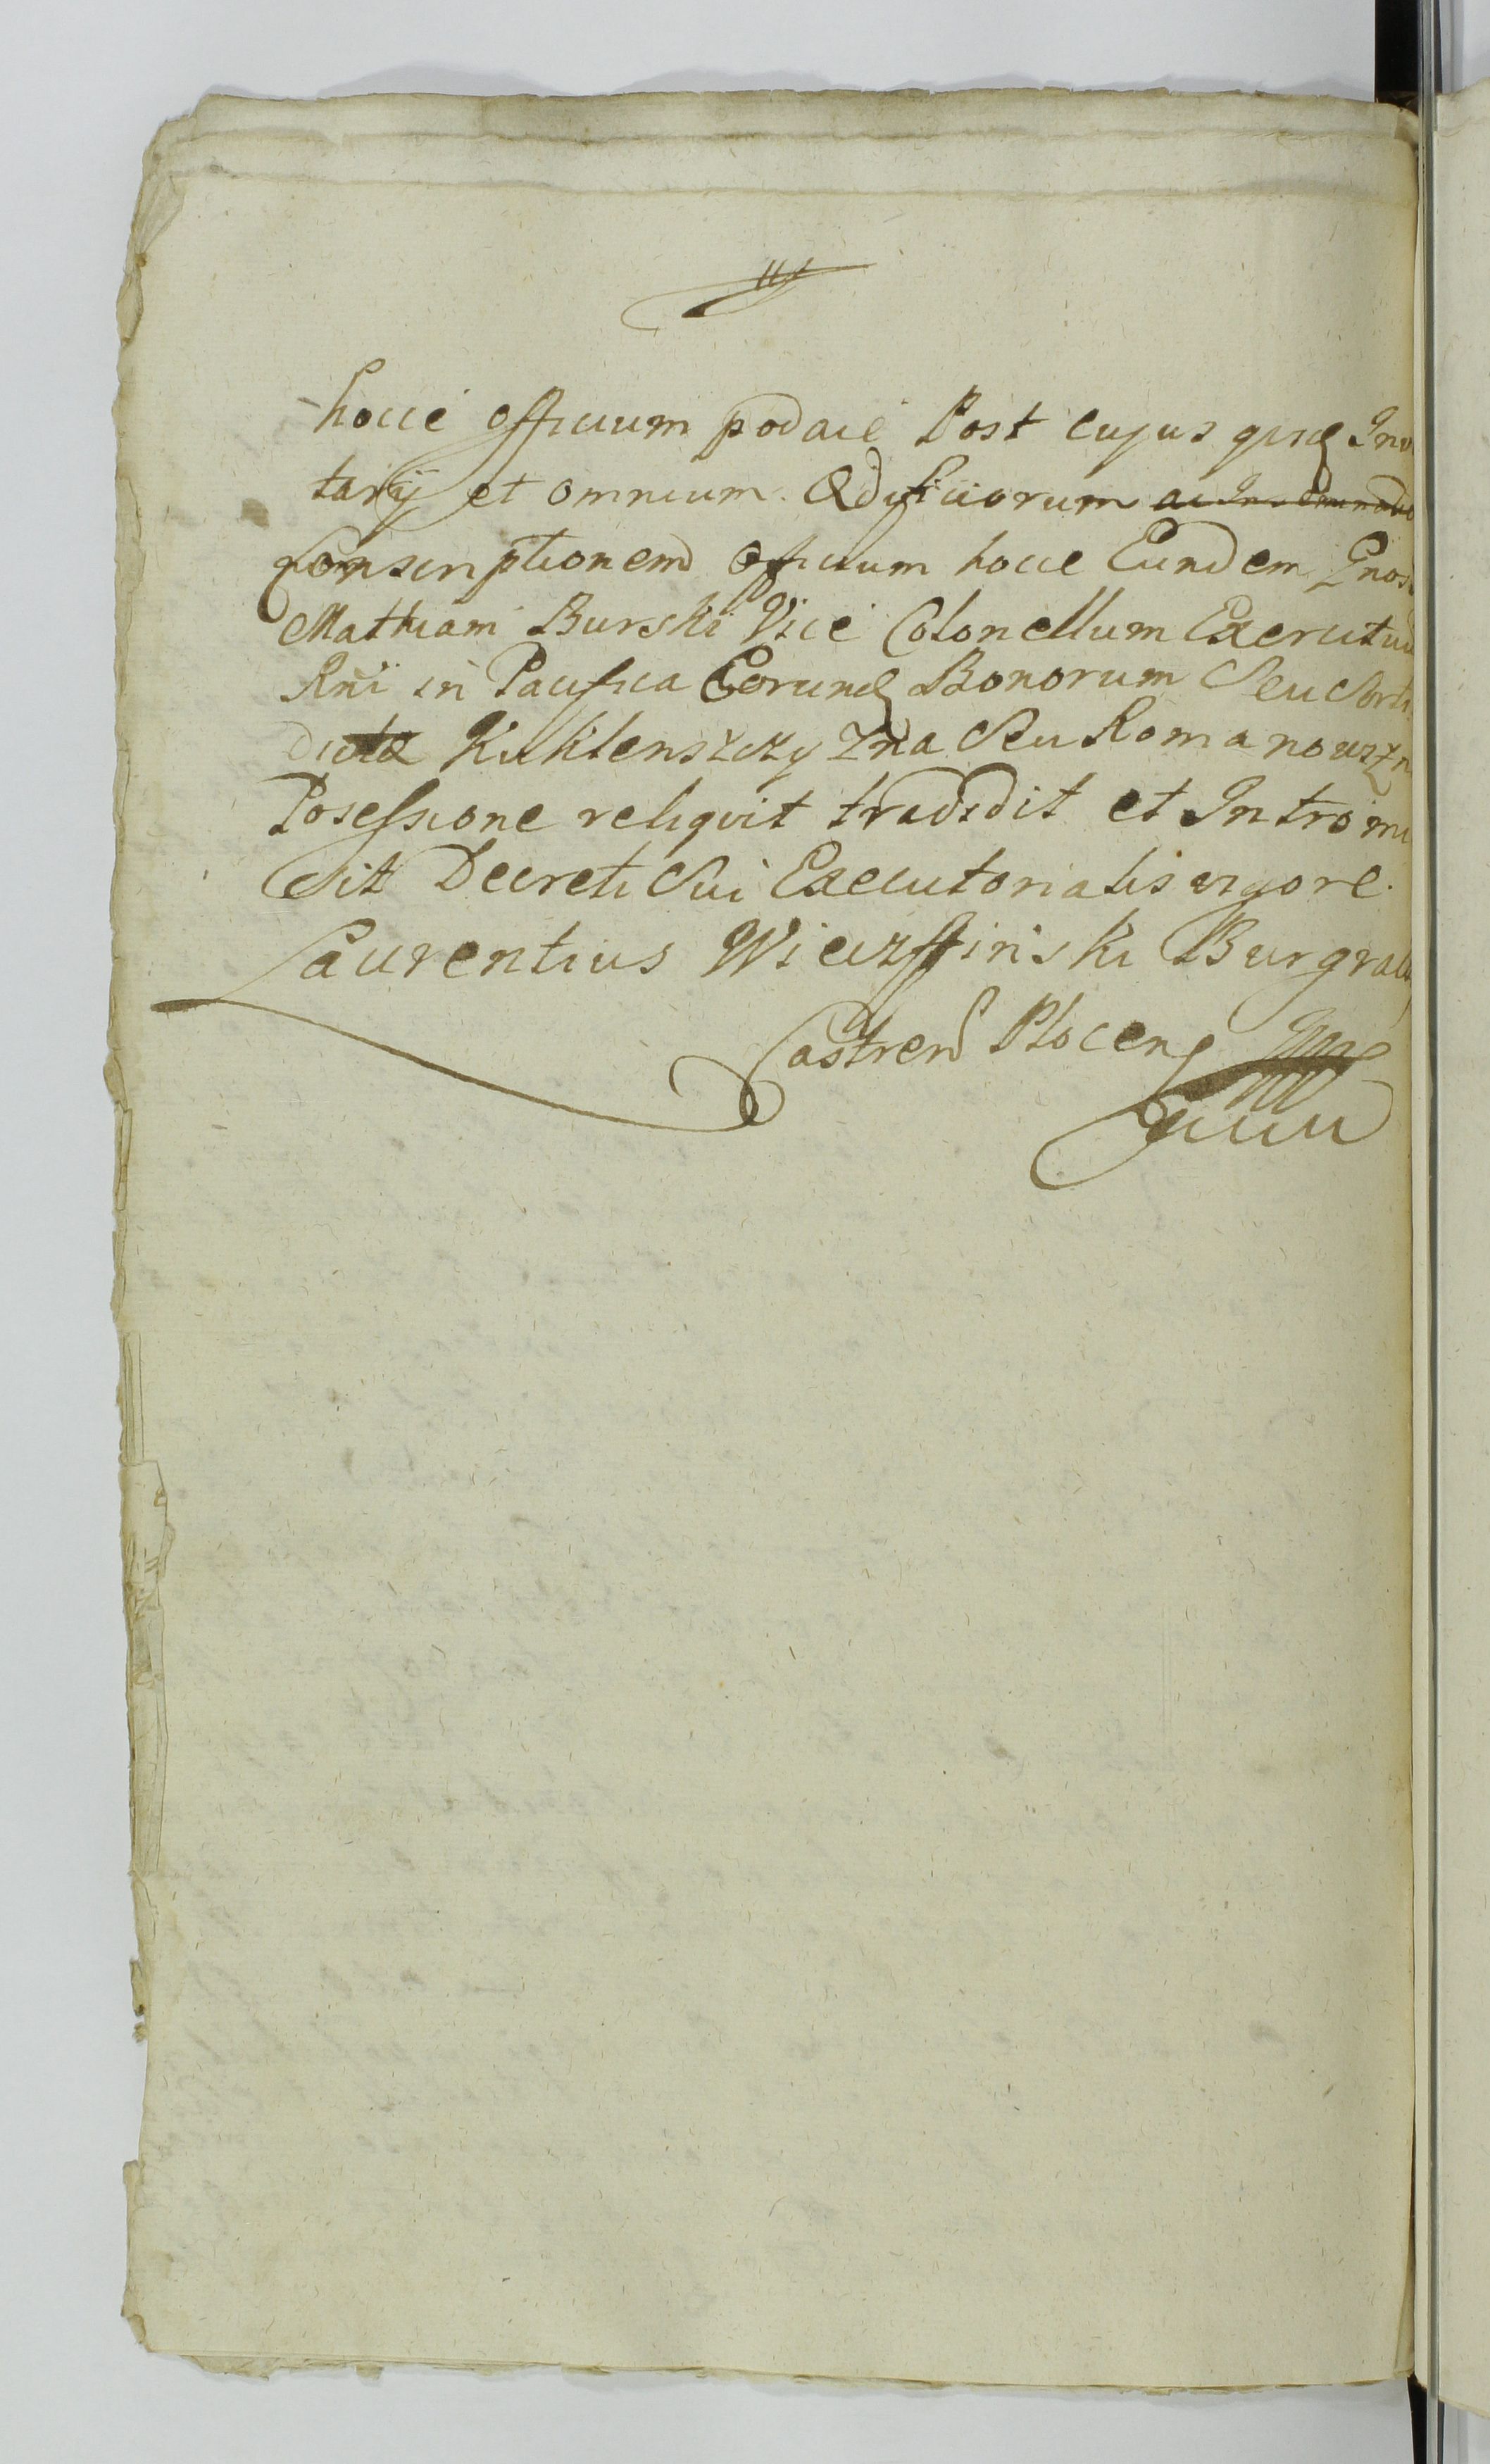 hocce officium podacie Post cujus quid Inv
tarij et omnium Ædificiorum
Conscriptionem officium hocce Eundem Gnos
Mathiam Burski Vice Colonellum Exercituu
Rni in Pacifica Eorund Bonorum Seu Sorti
dicta Kuklenszczyzna Seu Romanowszn
Posessione reliquit tradidit et Intromi
sit Decreti Sui Executorialis vigore.
Laurentius Burgrab
Castren Plocen